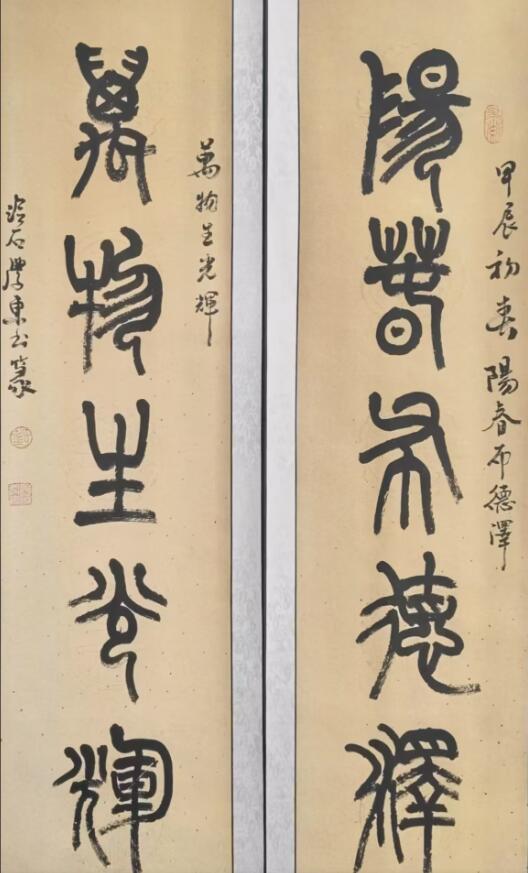 陽春布德澤
甲辰初春 陽春布德澤
萬物生光輝
萬物生光輝
石 東書篆